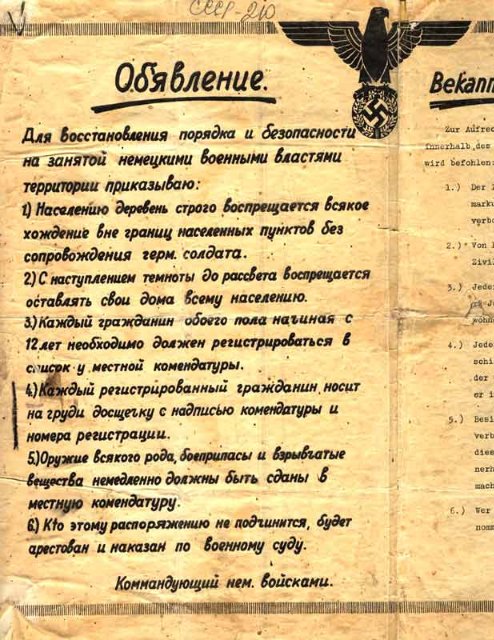 СССР-210
Обявление.
Для восстановления порядка и безопасности
на занятой немецкими военными властями
территории приказываю:
1.) Населению деревень строго воспрещается всякое
хождение вне границ населенных пунктов без
сопровождения герм. солдата.
2.) С наступлением темноты до рассвета воспрещается
оставлять свои дома всему населению.
3.) Каждый гражданин обоего пола начиная с
12 лет необходимо должен регистрироваться в
список у местной комендатуры.
4.) Каждый регистрированный гражданин носит
на груди досщечку с надписью комендатуры и
номера регистрации.
5.) Оружие всякого рода, боеприпасы и взрывчатые
вещества немедленно должны быть сданы в
местную комендатуру.
6.) Кто этому распоряжению не подчинится, будет
арестован и наказан по военному суду.
Коммандующий нем. войсками.
Bekann
Zur Aufrec
innerhalb des
wird befohlen:
1.) Der
marku
verbo
2.) Von
Zivil
3.) Jeder
wohn
4.) Jede
schi
der
er i
5.) Besi
verb
dies
nerh
mach
6.) Wer
nomm